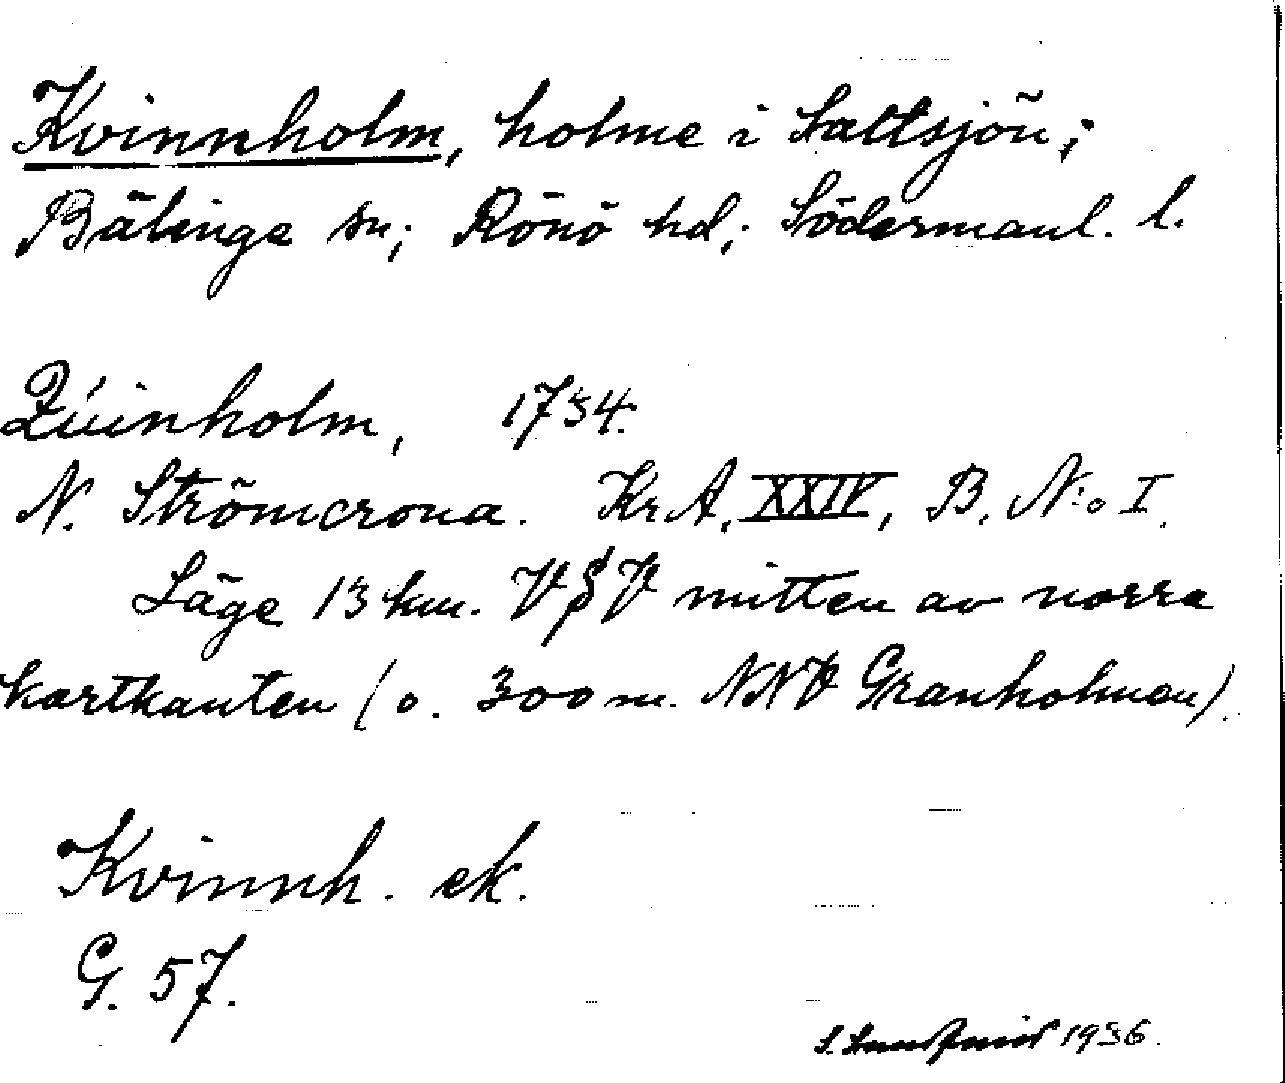 Kvinnholm, holme i Saltsjön;
Bälinge sn; Rönö hd; Södermanl. l.
Quinholm, 1734.
N. Strömcrona. Kr A. XXIV, B. N:o I.
Läge 13 km. VSV mitten av norra
kartkanten (o. 300 m. NNV Granholmen).
Kvinnh. ek.
G. 57.
1936.